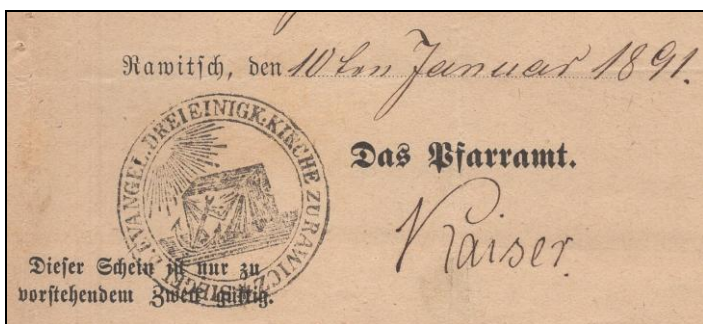 Rawitsch, den 10ten Januar 1891.
SIEGEL D. EVANGEL. DREIEINIGK. KIRCHE ZU RAWICZ
Das Pfarramt.
Kaiser.
Dieser Schein ist nur zu
vorstehendem Zweck gültig.